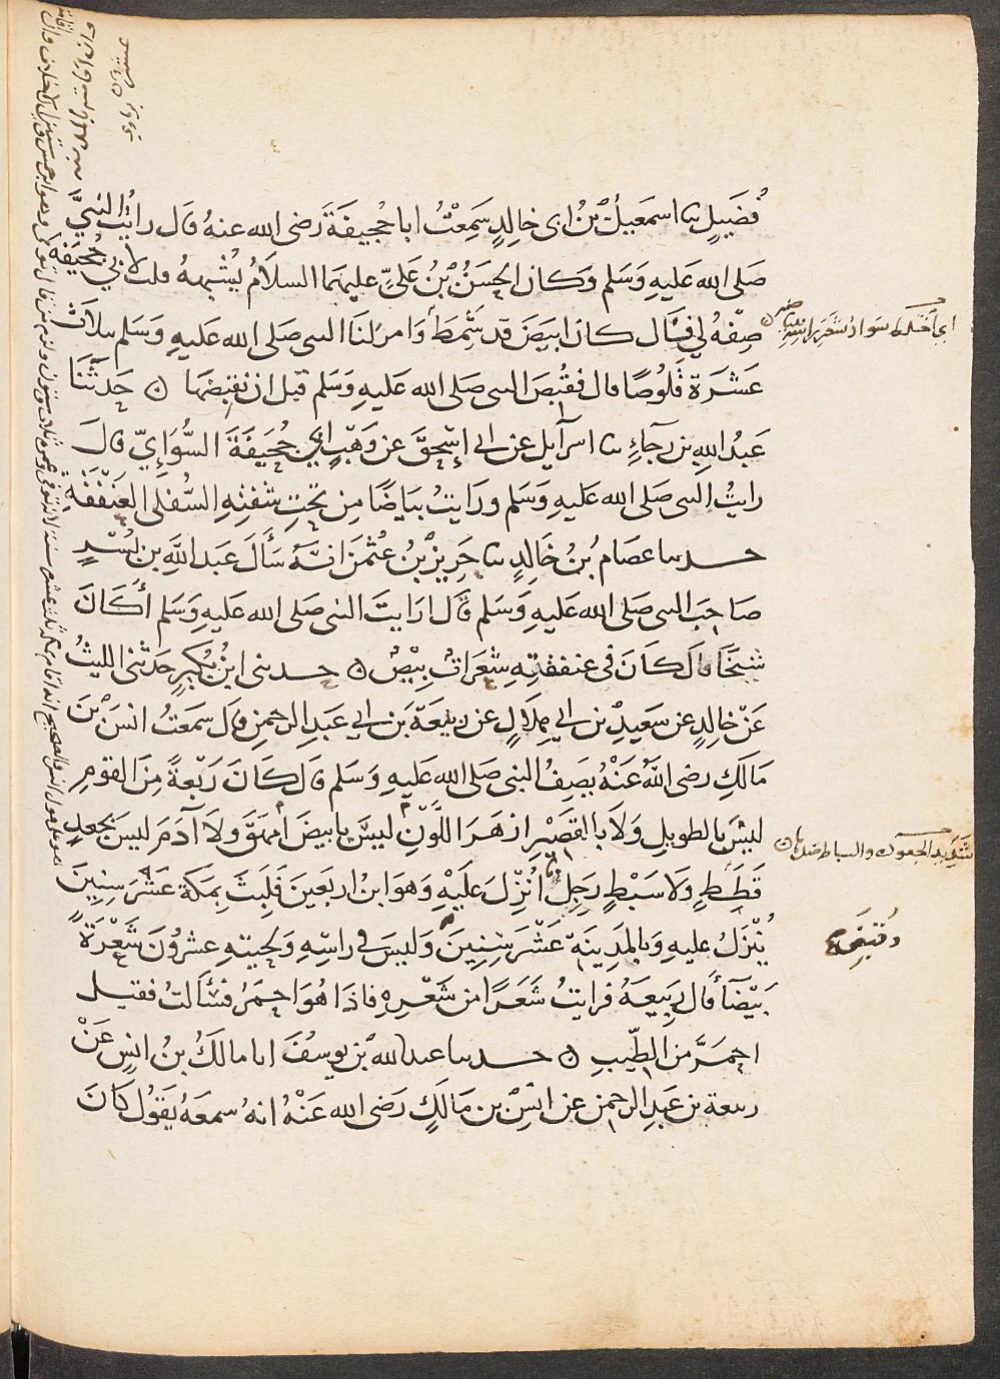 فُضَيلٍ ثنا اسمَعيلُ بنُ ابى خالِدٍ سَمِعْتُ ابا جُحيفَةَ رضى الله عنهُ قال رايتُ النبيَّ
صَلى الله عَليهِ وَسَلم وكان الحَسَنُ بنُ عَليٍّ عليهما السلامُ يُشْبِههُ قلت لابي جُحَيفَة
صِفْهُ لي قال كانَ ابيَضَ قد شَمِطَ وَامرَ لنَا النبى صَلى الله عليهِ وَسَلم بثلاثَ
عَشْرَةَ قَلُوصًا قال فقُبِضَ النبى صَلى الله عَليهِ وَسَلم قبل ان نقبِضَها ٥ حَدثَنَا
عَبدُ اللهِ بن رَجَاءٍ ثنا اسرآيل عن ابي إسْحٰقَ عن وَهْبٍ ابي جُحَيفَةَ السُّوَاءِيّ قالَ
رايتُ النبى صَلى الله عَليهِ وَسَلم ورَايتُ بيَاضًا مِن تحتِ شفتِهِ السُّفلى العَنْفَقَةِ
حدثنا عصَام بُنُ خَالِدٍ ثنا حَرِيزُ بنُ عُثمٰنَ انهُ سَأَلَ عَبدَ اللهِ بن بُسْرٍ
صَاحِبَ النبى صَلى الله عَليهِ وَسَلم قال ارَايتَ النبى صَلى الله عَليهِ وَسَلم أكَانَ
شيخًا قالَ كَانَ فى عنفقتِهِ شعَرَاتٌ بِيضٌ ٥ حدثنى ابنُ بُكَيرٍ حَدثنى الليثُ
عَنْ خالِدٍ عن سَعيدِ بن ابي هِلَالٍ عن ربيعَةَ بن ابي عَبدِ الرحمنِ قال سَمعَتُ انسَ بنَ
مَالكِ رضى اللهُ عَنْهُ يصِفُ النبى صَلى الله عَليهِ وَسَلم قالَ كَانَ رَبْعَةً مِنَ القومِ
ليسَ بالطويلِ وَلَا بالقَصِيرِ ازهَرَ اللَّونِ ليسَ بابيضَ امهَقَ ولا آدَمَ ليسَ بجعدٍ
قَطَطٍ وَلا سَبْطٍ رَجِلٍ انُزِلَ عَليْهِ وَهوَ ابنُ اربَعينَ فَلبِثَ بِمَكةَ عَشْرَ سِنِينَ
يُنْزَلُ عليهِ وَبالمَدِينَةِ عَشْرَ سِنِينَ وَليسَ فى راسِهِ وَلحيَتهِ عشرُونَ شَعْرَةً
بَيْضآءَ قال رَبِيعَةُ فرايتُ شَعَرًا من شَعْرِهِ فاذَا هُوَ احمَرُ فسَأَلتُ فقيل
احمَرَّ من الطِّيبِ ٥ حدثنا عبد الله بن يوسُفَ انا مالكُ بنُ انسٍ عَنْ
ربيعة بن عَبدِ الرحمنِ عن انَسِ بن مَالكٍ رَضى الله عَنْهُ انهُ سمعَهُ يَقوُلُ كَانَ
اي اختلط سَواد شَعَرِ راسِهِ
شديد الجعودة والسباط ضدها